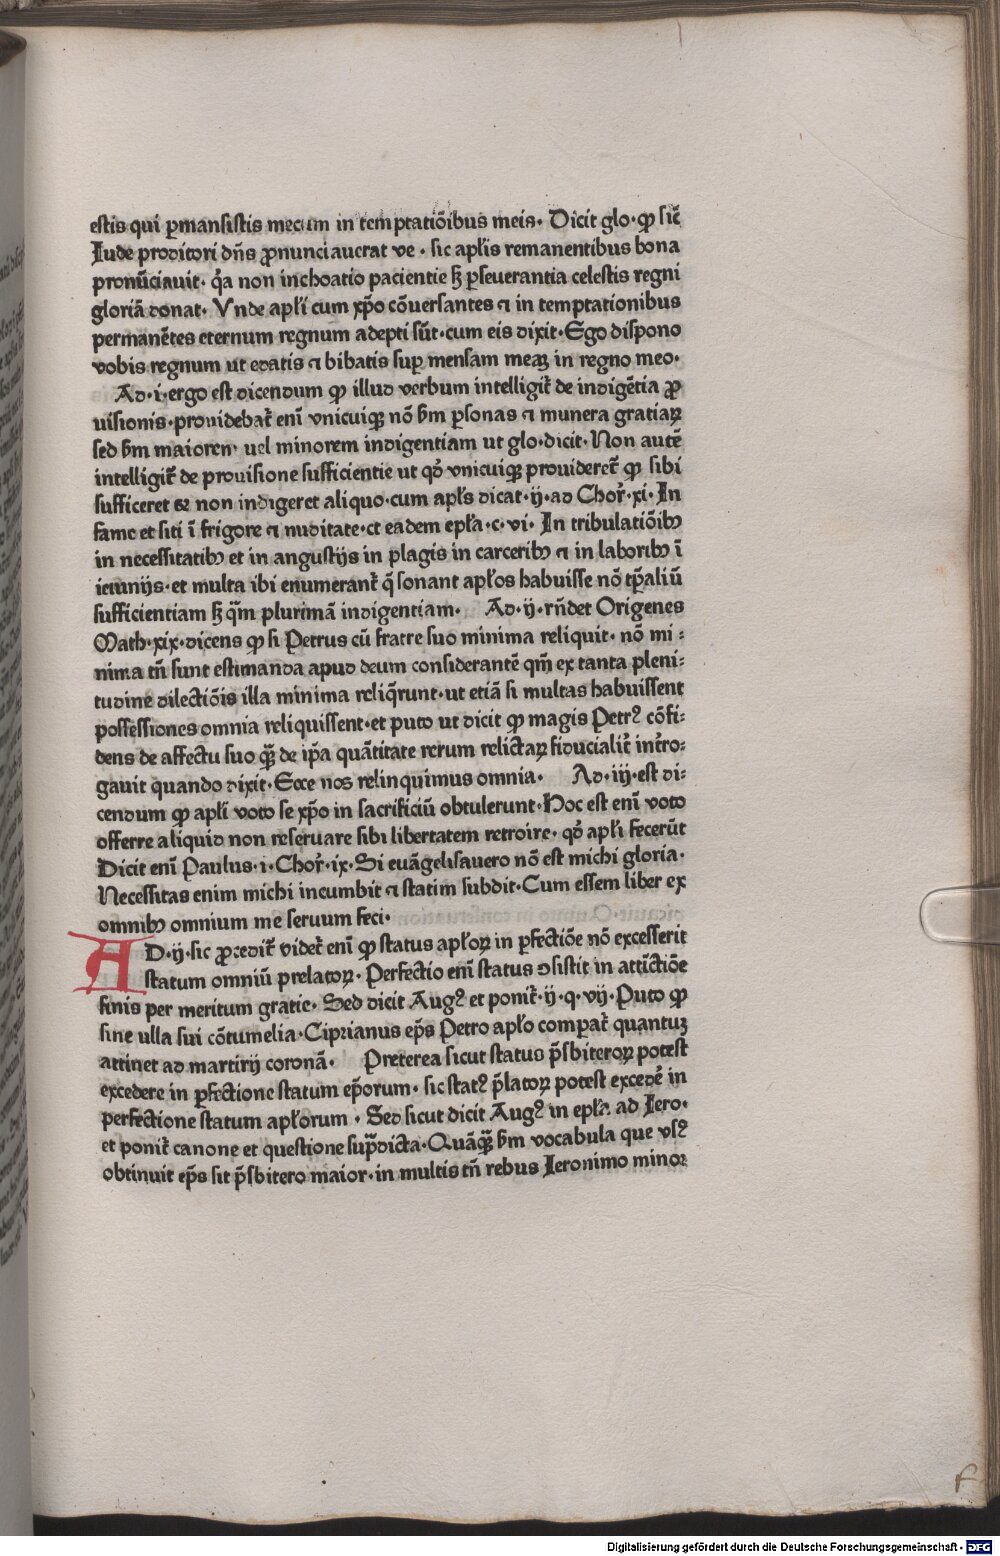 estis qui ꝑmansistis mecum in temptatiōibus meis· Dicit glo·ꝙ sic̄
Iude proditori dn̄s ꝓnunciauerat ve · sic apl̄is remanentibus bona
pronūciauit· q̄a non inchoatio pacientie sꝫ ꝑseuerantia celestis regni
gloriā donat· Vnde apl̄i cum xp̄o cōuersantes ⁊ in temptationibus
permanētes eternum regnum adepti sūt·cum eis dixit·Ego dispono
vobis regnum ut edatis ⁊ bibatis suꝑ mensam meaꝫ in regno meo·
Ad·i·ergo est dicendum ꝙ illud verbum intelligit̄ de indigētia ꝓ
uisionis·prouidebat̄ enī vnicuiqꝫ nō ẞm ꝑsonas ⁊ munera gratiaꝝ
sed ẞm maiorem uel minorem indigentiam ut glo·dicit·Non autē
intelligit̄ de prouisione sufficientie ut qď vnicuiqꝫ prouideret̄ ꝙ sibi
sufficeret et non indigeret aliquo·cum apl̄s dicat·ij·ad Chor̄·xi·In
fame et siti ī frigore ⁊ nuditate·et eadem epl̄a·c·vi· In tribulatiōibꝰ
in necessitatibꝰ et in angustijs in plagis in carceribꝰ ⁊ in laboribꝰ ī
ieiunijs·et multa ibi enumerant̄ q̄ sonant apl̄os habuisse nō tp̄aliū
sufficientiam sꝫ q̄m plurimā indigentiam· Ad·ij·rn̄det Origenes
Math·xix·dicens ꝙ si Petrus cū fratre suo minima reliquit· nō mi:
nima tn̄ sunt estimanda apud deum considerantē qm̄ ex tanta pleni:
tudine dilectiōis illa minima reliq̄runt·ut etiā si multas habuissent
possessiones omnia reliquissent·et puto ut dicit ꝙ magis Petrꝰ cōfi:
dens de affectu suo qꝫ̄ de ip̄a quātitate rerum relictaꝝ fiducialit̄ int̄ro:
gauit quando dixit·Ecce nos relinquimus omnia· Ad·iij·est di:
cendum ꝙ apl̄i voto se xp̄o in sacrificiū obtulerunt·Hoc est enī voto
offerre aliquid non reseruare sibi libertatem retroire· qď apl̄i fecerūt
Dicit enī Paulus·i·Chor̄·ix·Si euāgelisauero nō est michi gloria·
Necessitas enim michi incumbit ⁊ statim subdit·Cum essem liber ex
omnibꝰ omnium me seruum feci·
AD·ij·sic ꝓcedit̄ videt̄ enī ꝙ status apl̄oꝝ in ꝑfectiōe nō excesserit
statum omniū prelatoꝝ· Perfectio enī status ꝯsistit in attīctiōe
finis per meritum gratie· Sed dicit Augꝰ et ponit̄·ij·q·vij·Puto ꝙ
sine ulla sui cōtumelia·Ciprianus ep̄s Petro apl̄o compat̄ quantuꝫ
attinet ad martirij coronā· Preterea sicut status p̄sbiteroꝝ potest
excedere in ꝑfectione statum ep̄orum· sic statꝰ p̄latoꝝ potest excedē in
perfectione statum apl̄orum · Sed sicut dicit Augꝰ in epl̄a ad Iero·
et ponit̄ canone et questione sup̄dicta·Quāqꝫ̄ ẞm vocabula que vsꝰ
obtinuit ep̄s sit p̄sbitero maior·in multis tn̄ rebus Ieronimo minor
f
Digitalisierung gefördert durch die Deutsche Forschungsgemeinschaft · DFG